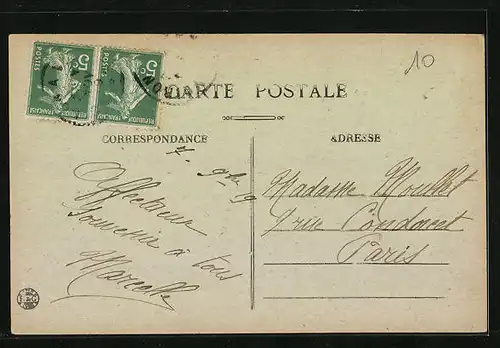 10
5c 5c
POSTES POSTES
REPUBLIQUE FRANÇAISE REPUBLIQUE FRANÇAISE
CARTE POSTALE
CORRESPONDANCE
ADRESSE
7. 9bre 9
Affectueux
Souvenir à tous
Marcelle
Madame Moullet
7 rue Condorcet
Paris